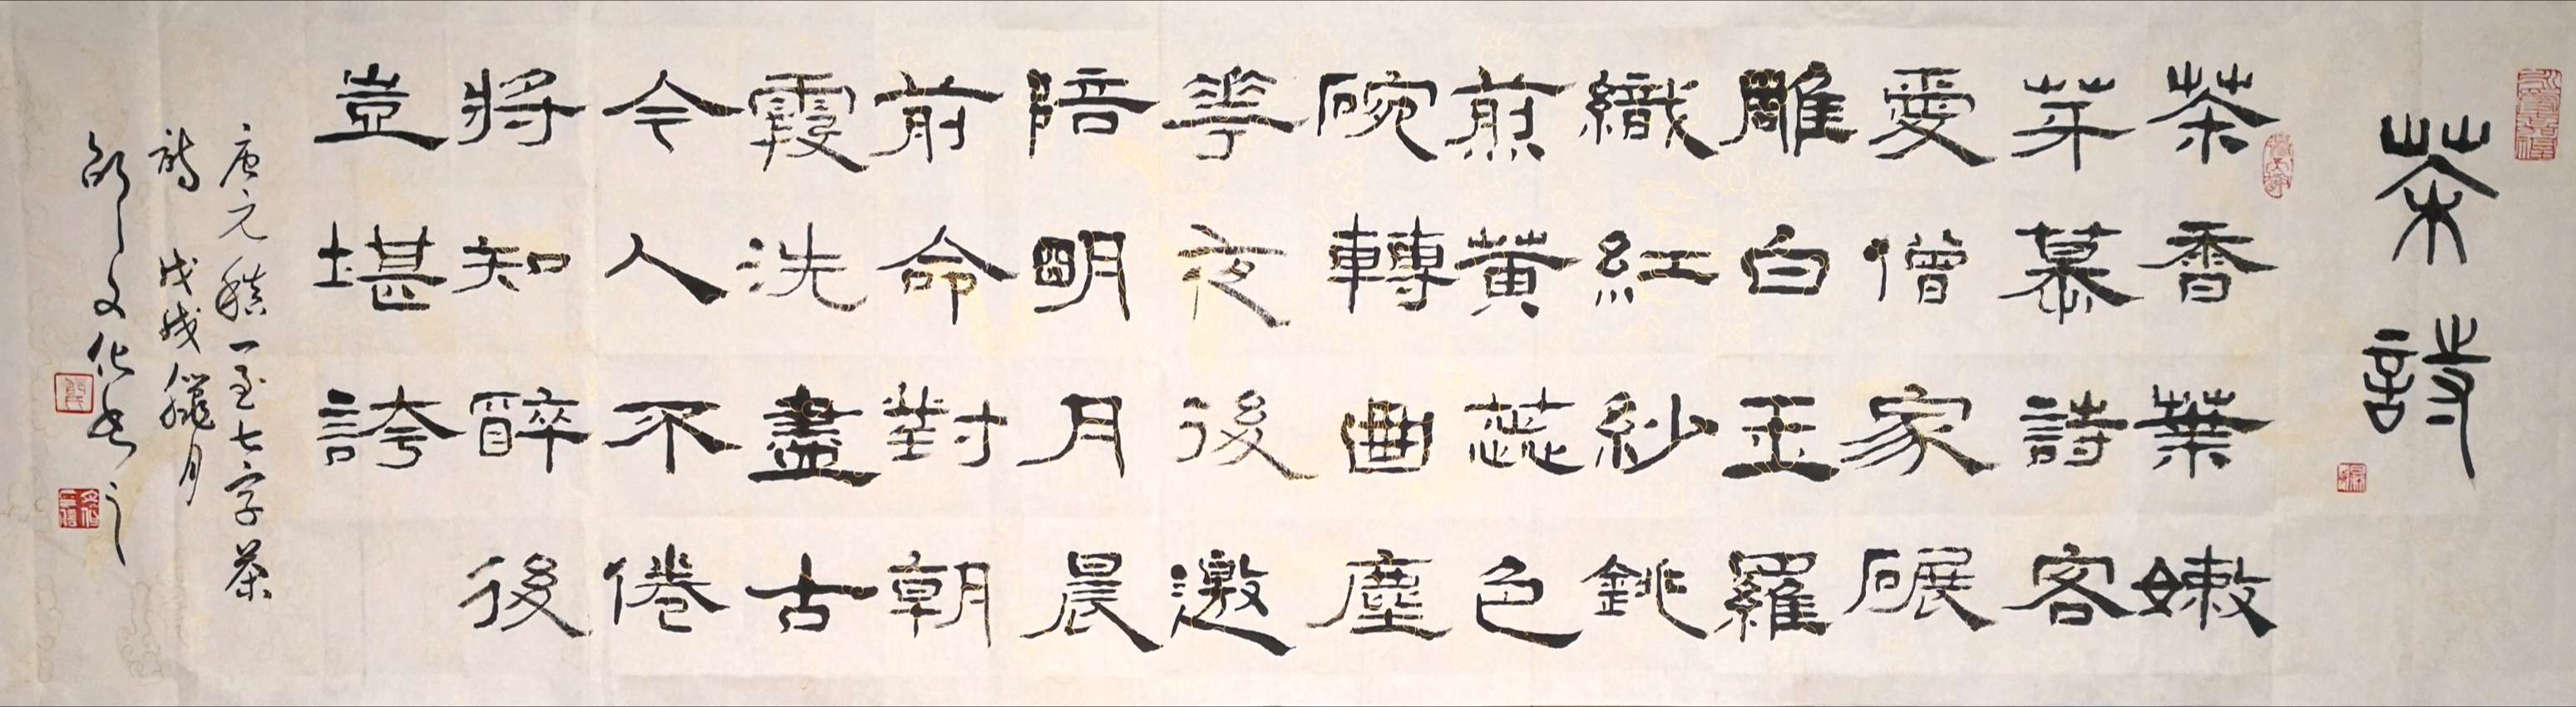 茶詩
茶香葉嫩
芽慕詩客
愛僧家碾
雕白玉羅
織紅紗銚
煎黃蕊色
碗轉曲塵
華夜後邀
陪明月晨
前命對朝
霞洗盡古
今人不倦
將知醉後
豈堪誇
唐元稹一至七字茶
詩 戊戌臘月
文化書之